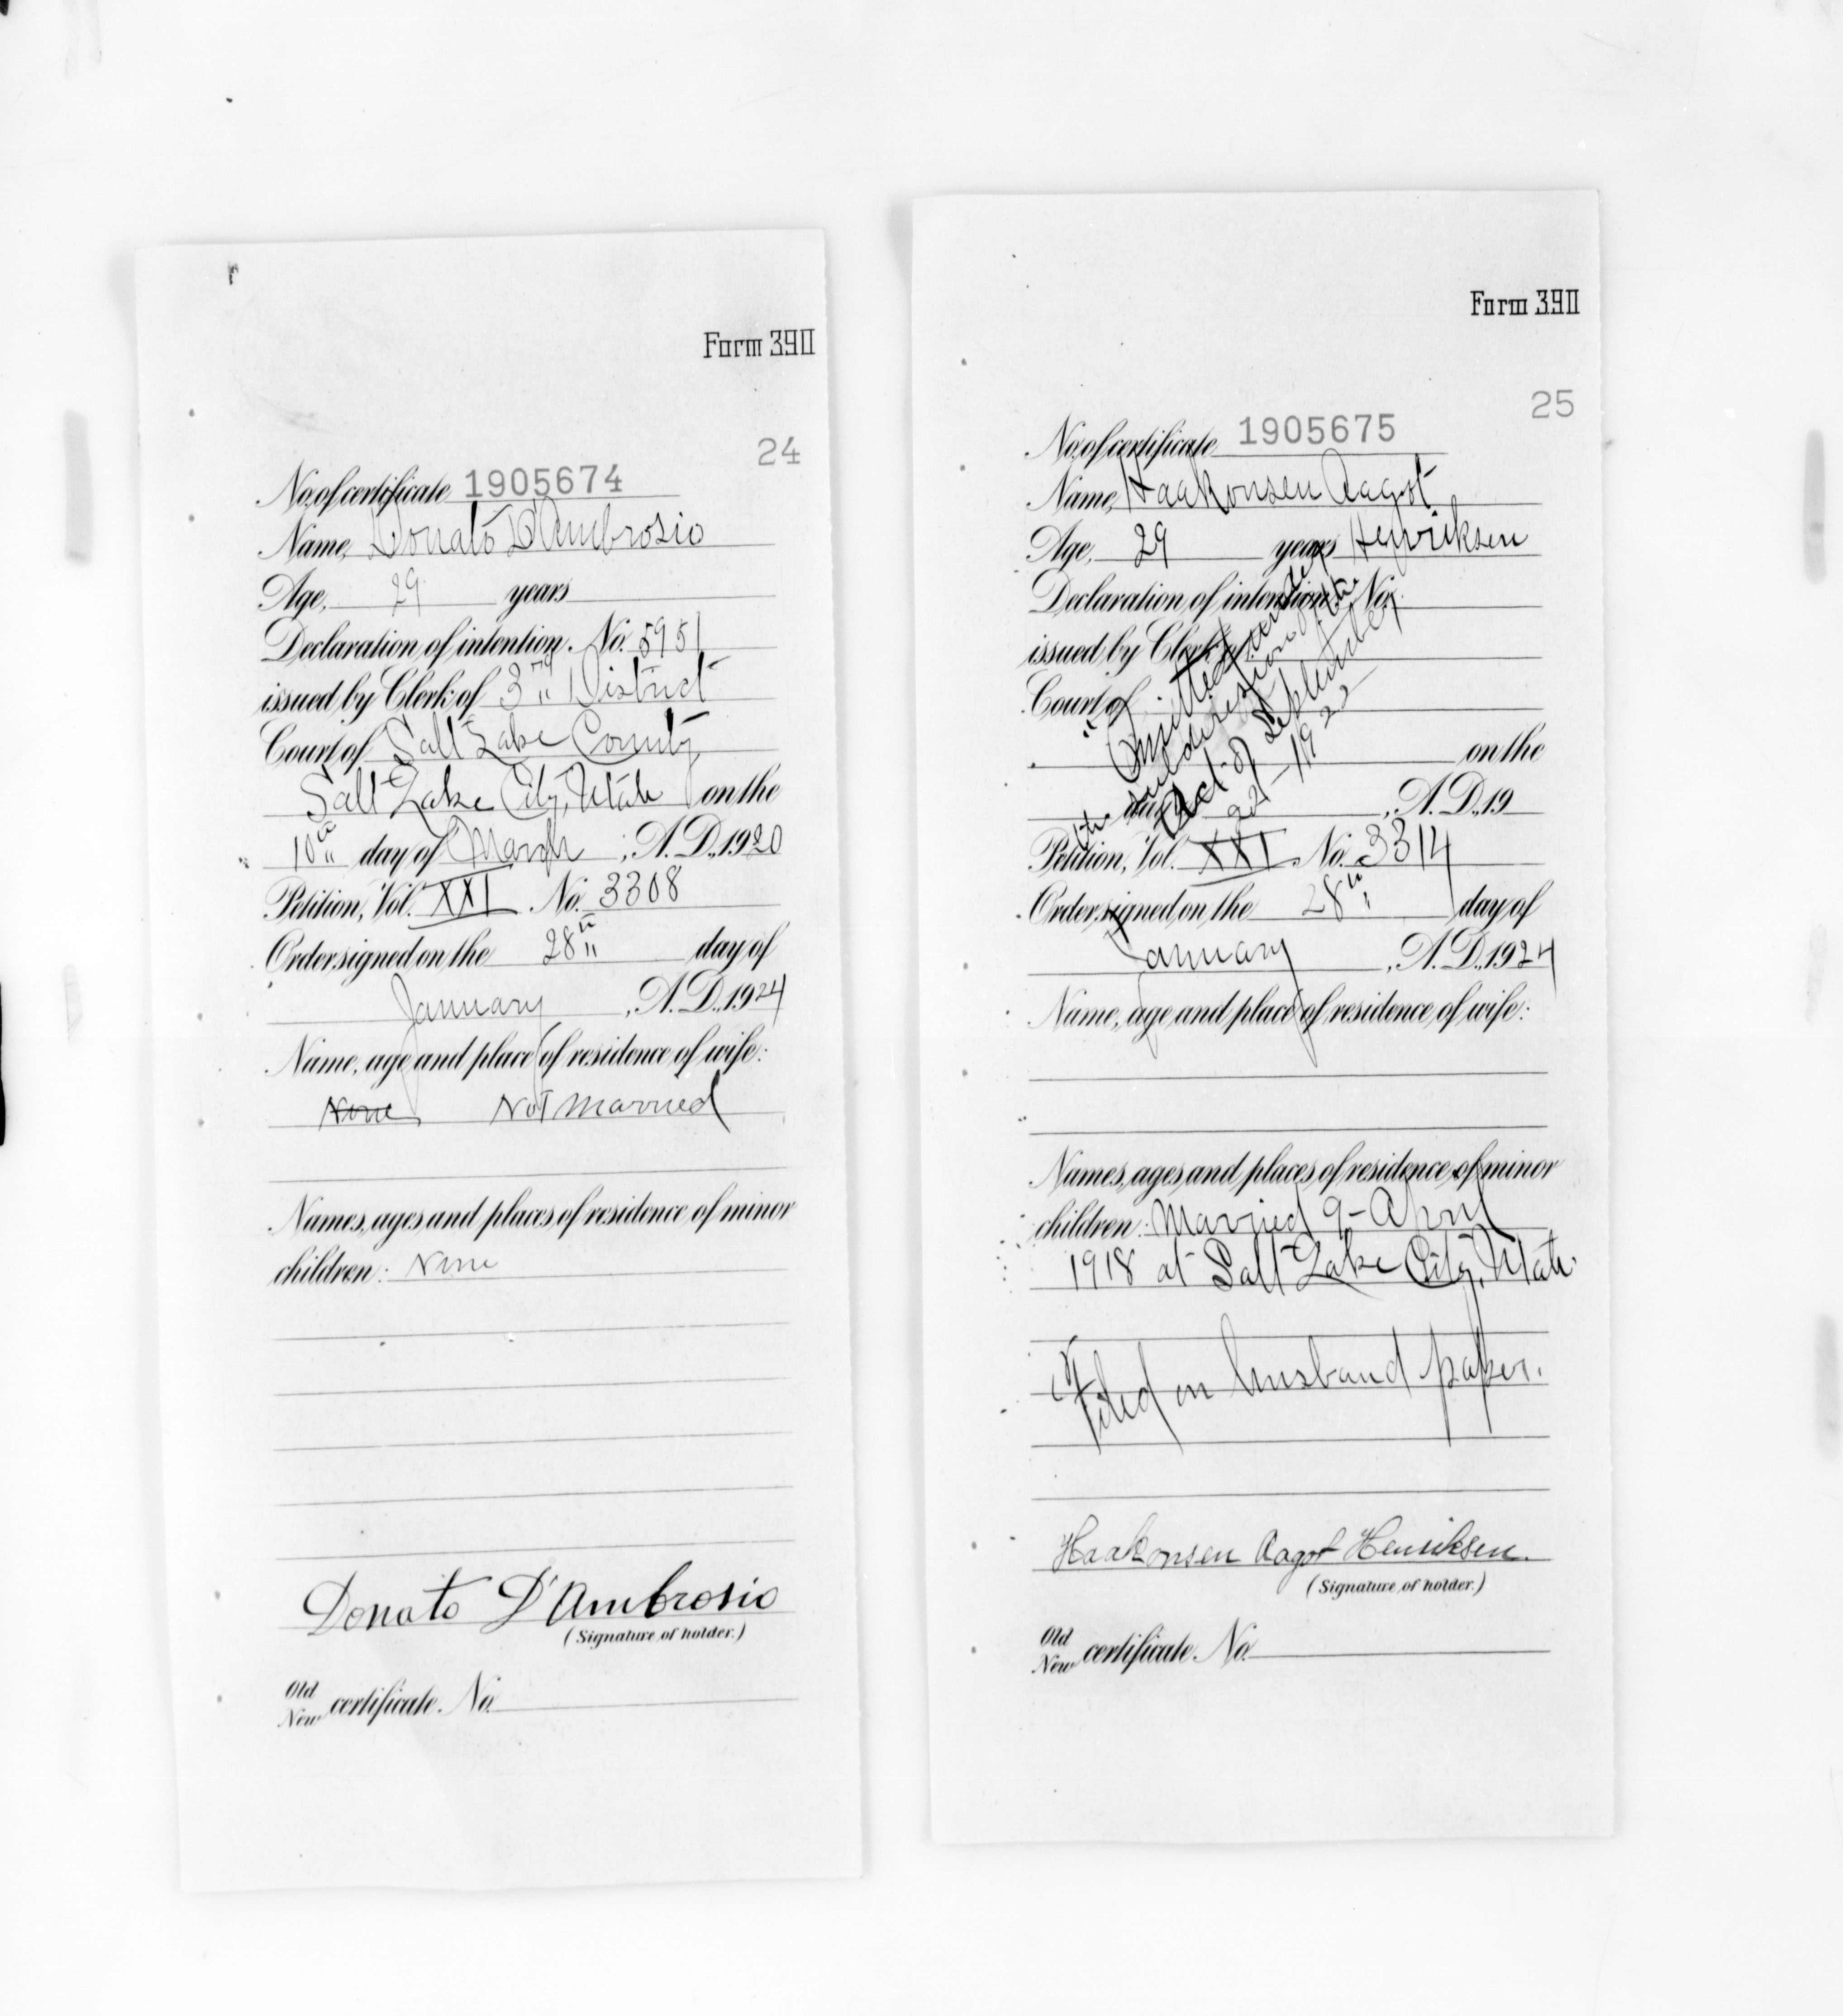 Form 390
24
No. of certificate 1905674
Name, Donato D'Ambrosio
Age, 29 years
Declaration of intention. No. 5951
issued by Clerk of 3rd District
Court of Salt Lake County
Salt Lake City, Utah on the
10th day of March, A.D. 1920
Petition, Vol. XXI No. 3308
Order signed on the 28th day of
January, A.D. 1924
Name, age and place of residence of wife:
None Not Married
Names, ages and places of residence of minor
children: None
Donato D'Ambrosio
(Signature of holder.)
Old
New certificate. No.
Form 390
25
No. of certificate 1905675
Name, Haakonsen Aagot
Age, 29 years Henriksen
Declaration of intention. No.
issued by Clerk of
Court of
on the
day of, A.D. 19
Omitted under
the subdivision of the
Act of September
22-1922
Petition, Vol. XXI No. 3314
Order signed on the 28th day of
January, A.D. 1924
Name, age and place of residence of wife:
Names, ages and places of residence of minor
children: Married 9-April
1918 at Salt Lake City, Utah.
Filed on husband paper.
Haakonsen Aagot Henriksen.
(Signature of holder.)
Old
New certificate. No.